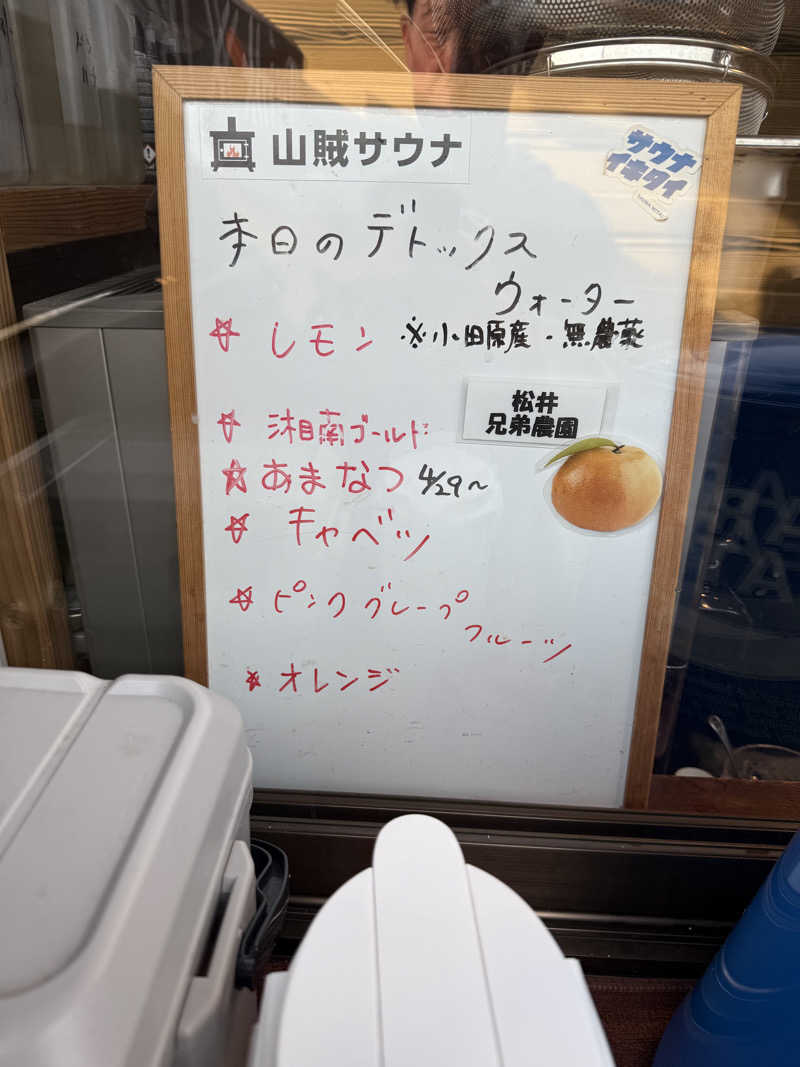 山賊サウナ
サウナ
イキタイ
本日のデトックス
ウォーター
☆レモン ※小田原産・無農薬
松井
兄弟農園
☆湘南ゴールド
☆あまなつ 4/29〜
☆キャベツ
☆ピンクグレープ
フルーツ
☆オレンジ